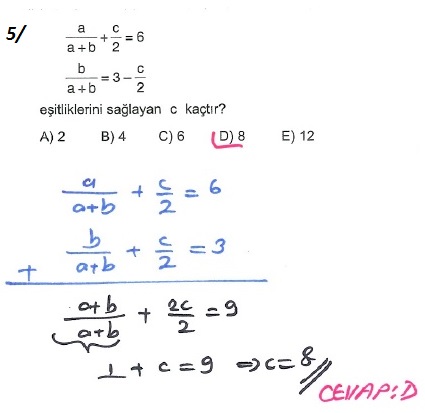 5/
a/(a+b) + c/2 = 6
b/(a+b) = 3 – c/2
eşitliklerini sağlayan c kaçtır?
A) 2 B) 4 C) 6 D) 8 E) 12
a/(a+b) + c/2 = 6
+ b/(a+b) + c/2 = 3
(a+b)/(a+b) + 2c/2 = 9
1 + c = 9 ⇒ c = 8 //
CEVAP: D